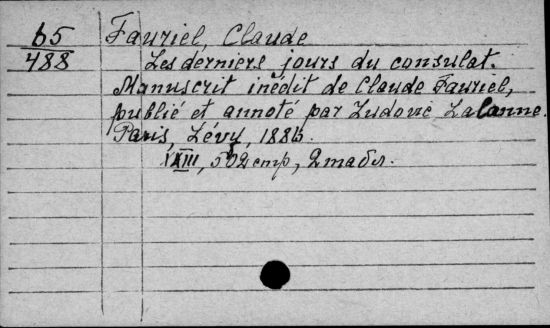 65
488
Fauriel, Claude
Les derniers jours du consulat.
Manuscrit inédit de Claude Fauriel,
publié et annoté par Ludovic Lalanne.
Paris, Lévy, 1886.
XXIII, 502 стр, 2 табл.